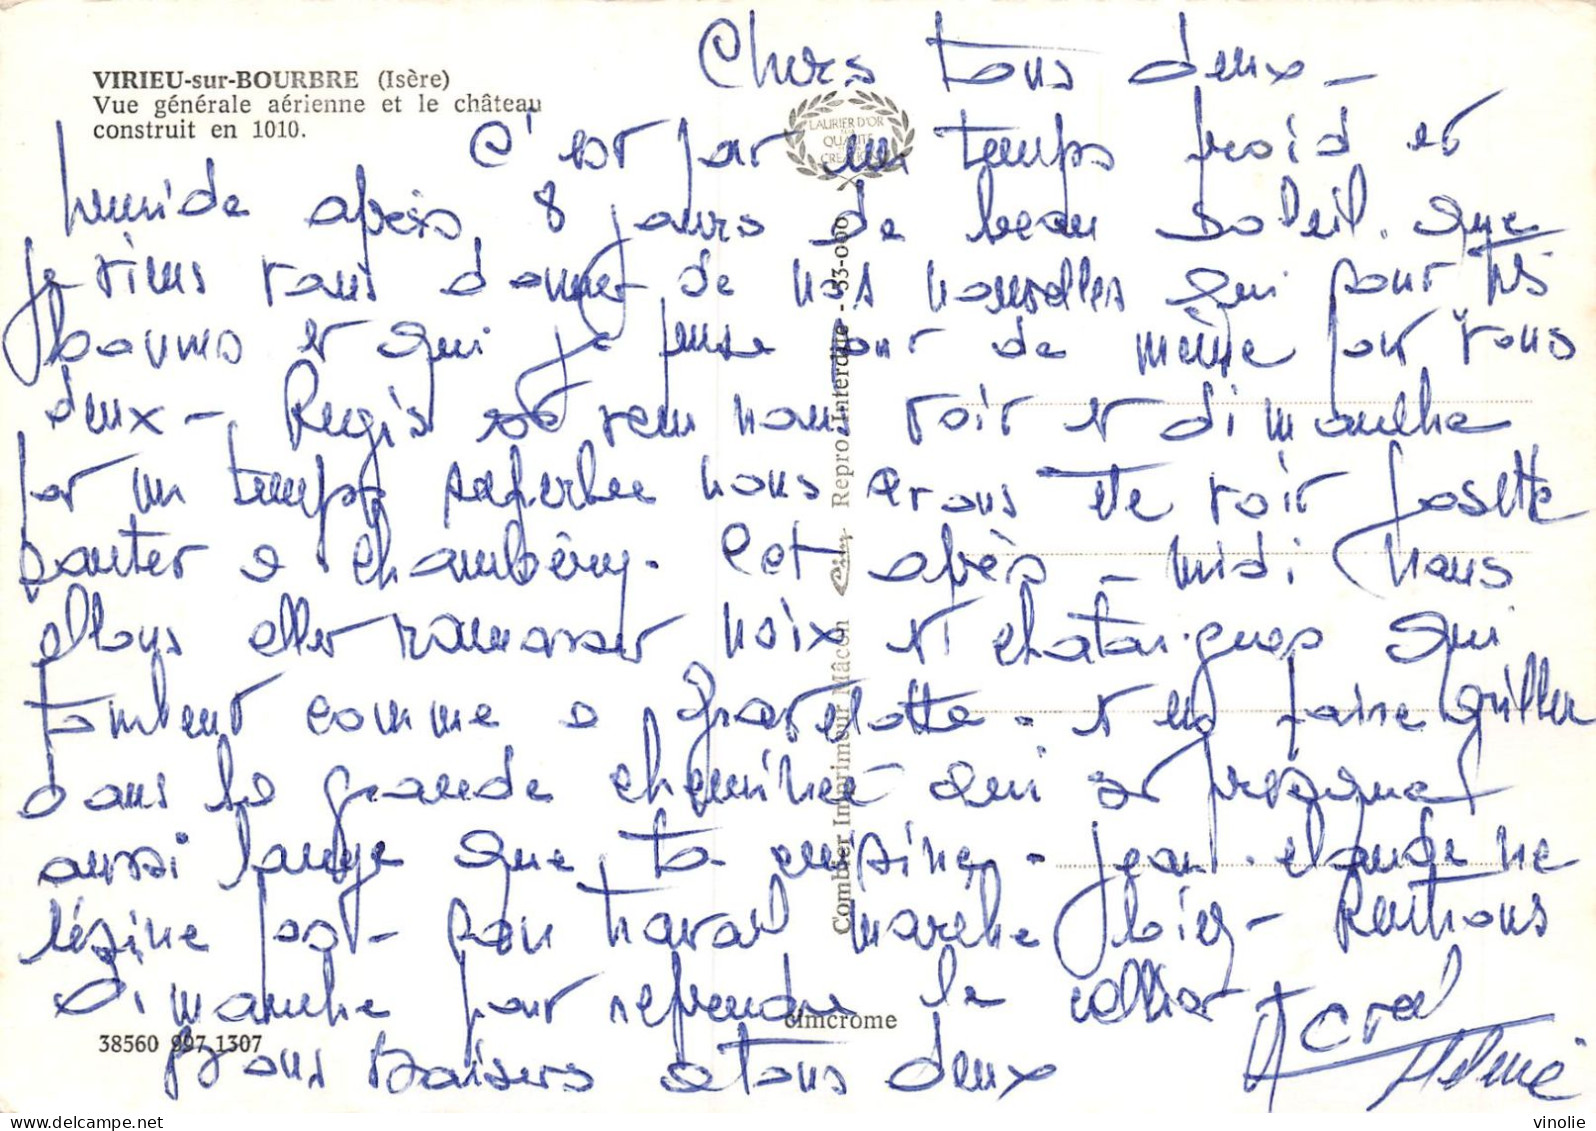 VIRIEU-sur-BOURBRE (Isère)
Vue générale aérienne et le château
construit en 1010.
LAURIER D'OR
QUALITÉ
CREATION
Chers tous deux -
C'est par un temps froid et
humide après 8 jours de beau soleil. que
je viens vous donner de nos nouvelles qui sont très
bonnes et qui je pense sont de même pour vous
deux - Régis est venu nous voir et dimanche
par un temps superbe nous avons été voir Josette
à Chambéry. Cet après-midi nous
allons aller ramasser noix et chataignes qui
tombent comme a Gravelotte - et en faire griller
dans la grande cheminée qui est presque
aussi large que ta cuisine - Jean-Claude ne
lésine pas - son travail marche bien - Rentrons
dimanche pour reprendre le collier
Bons Baisers a tous deux
Marcel
Hélène
Combier Imprimeur Mâcon Cim Repro. Interdite - 33-000
cimcrome
38560 997 1307
vinolie